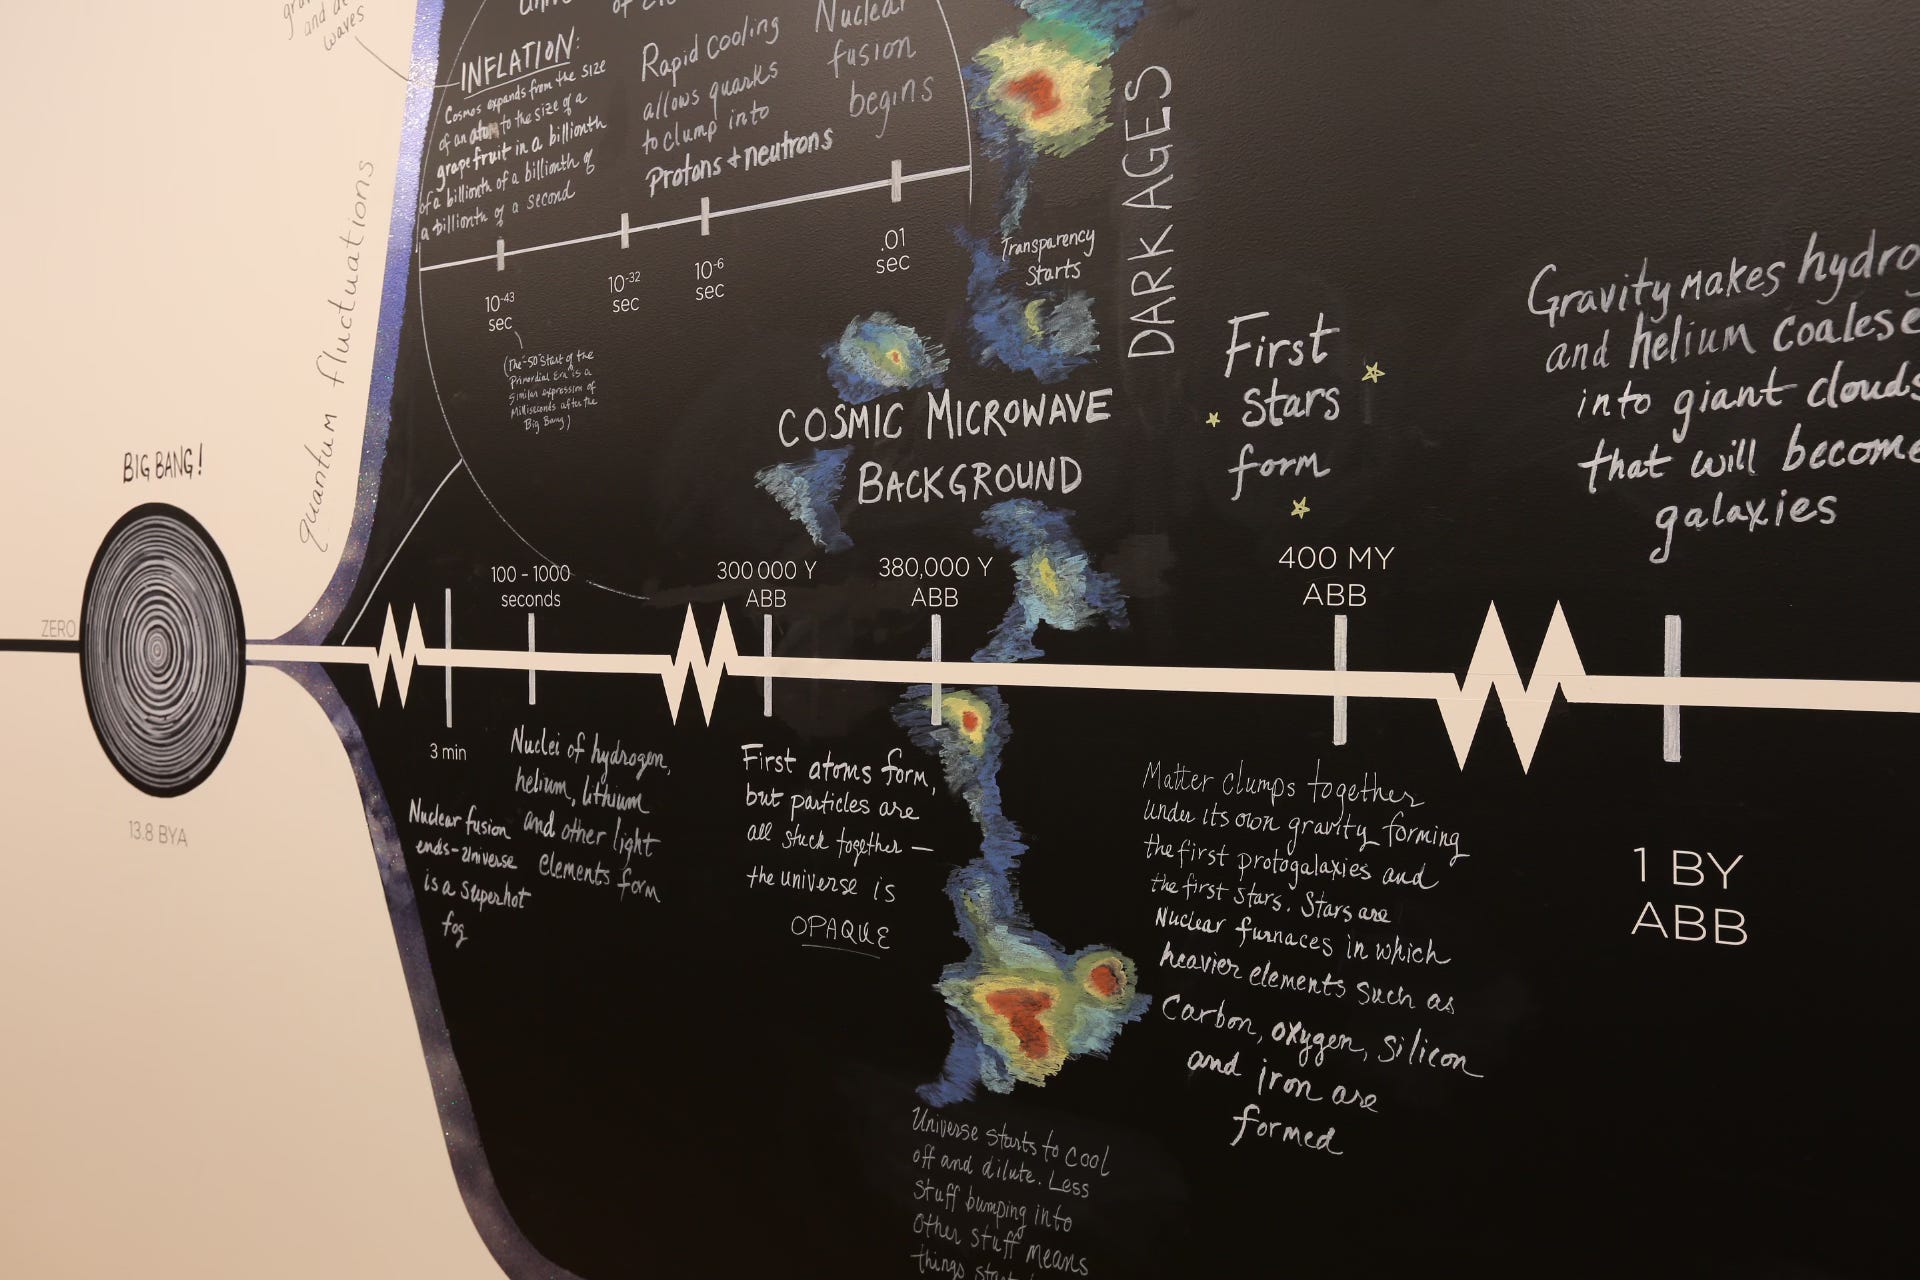 and
waves
quantum fluctuations
BIG BANG!
ZERO
13.8 BYA
of
INFLATION:
Cosmos expands from the size
of an atom to the size of a
grapefruit in a billionth
of a billionth of a billionth of
a billionth of a second
Rapid cooling
allows quarks
to clump into
Protons + neutrons
Nuclear
fusion
begins
10-43
sec
10-32
sec
10-6
sec
.01
sec
(The -50 start of the
Primordial Era is a
similar expression of
Milliseconds after the
Big Bang)
Transparency
Starts
DARK AGES
COSMIC MICROWAVE
BACKGROUND
First
stars
form
Gravity makes hydro
and helium coalese
into giant clouds
that will become
galaxies
100 - 1000
seconds
300 000 Y
ABB
380,000 Y
ABB
400 MY
ABB
3 min
Nuclear fusion
ends - Universe
is a superhot
fog
Nuclei of hydrogen,
helium, lithium
and other light
elements form
First atoms form,
but particles are
all stuck together —
the universe is
OPAQUE
Matter clumps together
under its own gravity forming
the first protogalaxies and
the first stars. Stars are
Nuclear furnaces in which
heavier elements such as
Carbon, oxygen, Silicon
and iron are
formed
1 BY
ABB
Universe starts to cool
off and dilute. Less
Stuff bumping into
other stuff means
things